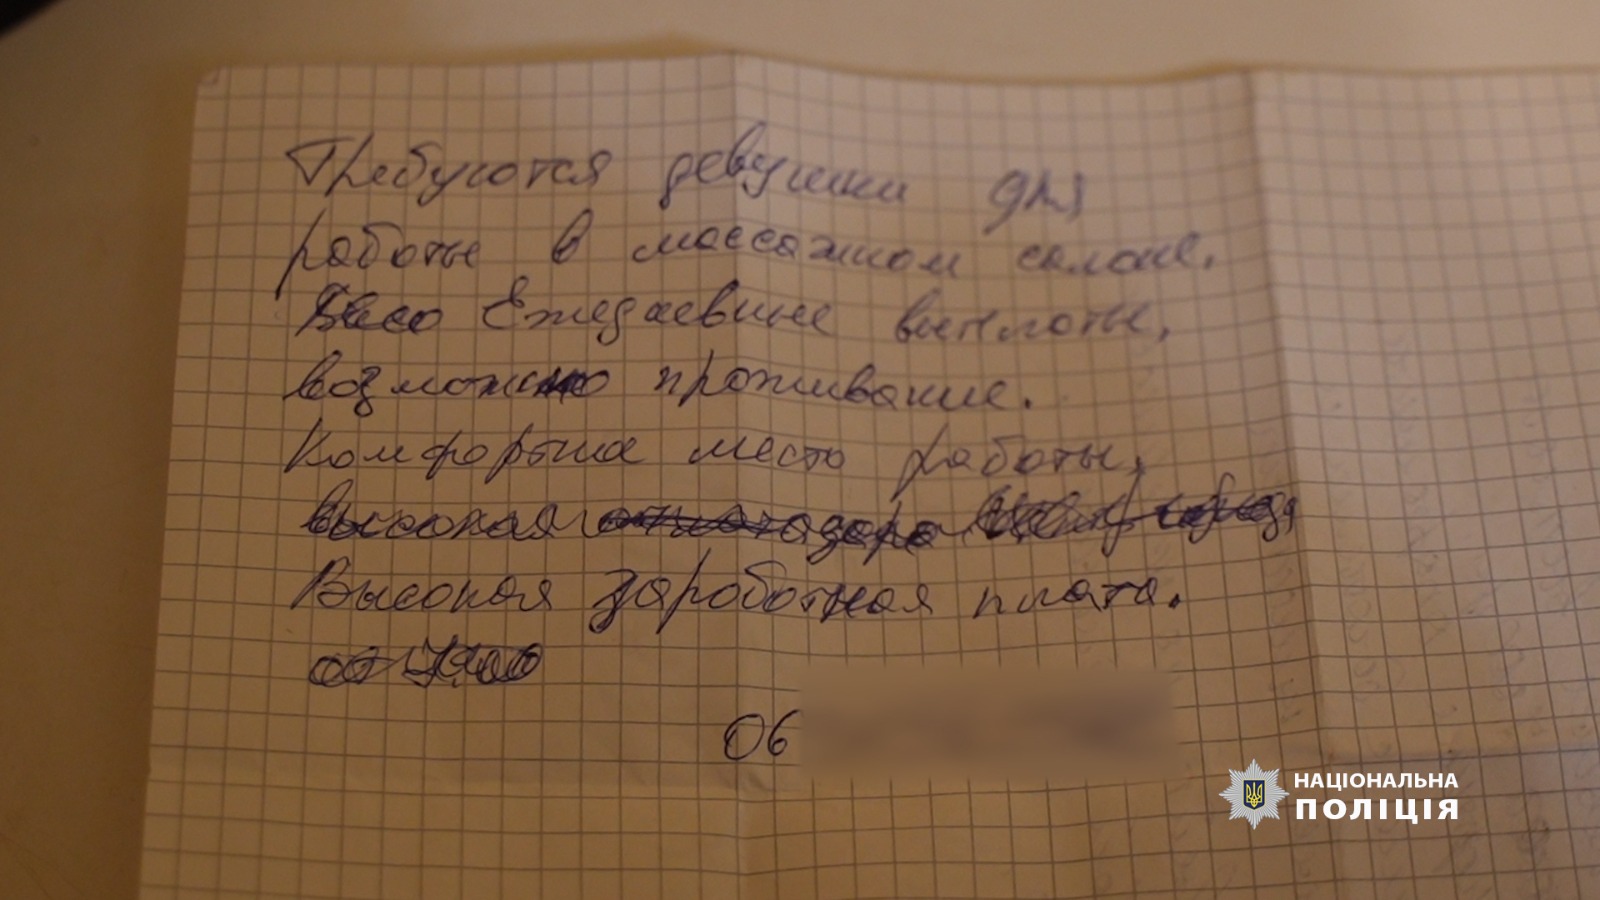 Требуются девушки для
работы в массажном салоне.
Ежедневные выплаты,
возможно проживание.
Комфортное место работы,
высокая
Высокая зароботная плата.
06
НАЦІОНАЛЬНА
ПОЛІЦІЯ